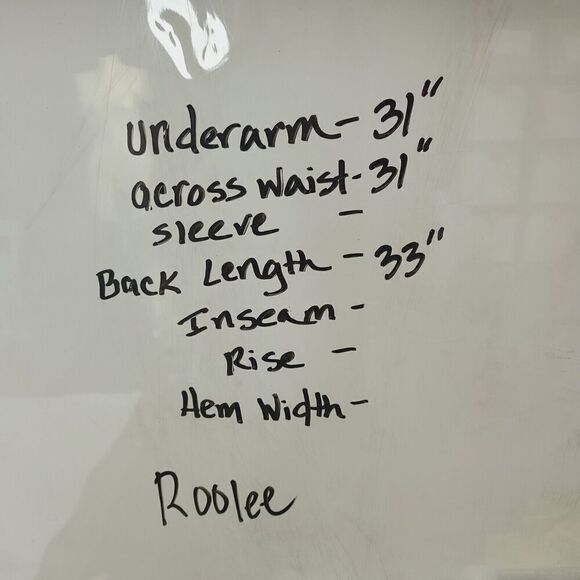 underarm - 31"
across waist - 31"
sleeve -
Back Length - 33"
Inseam -
Rise -
Hem Width -
Roolee